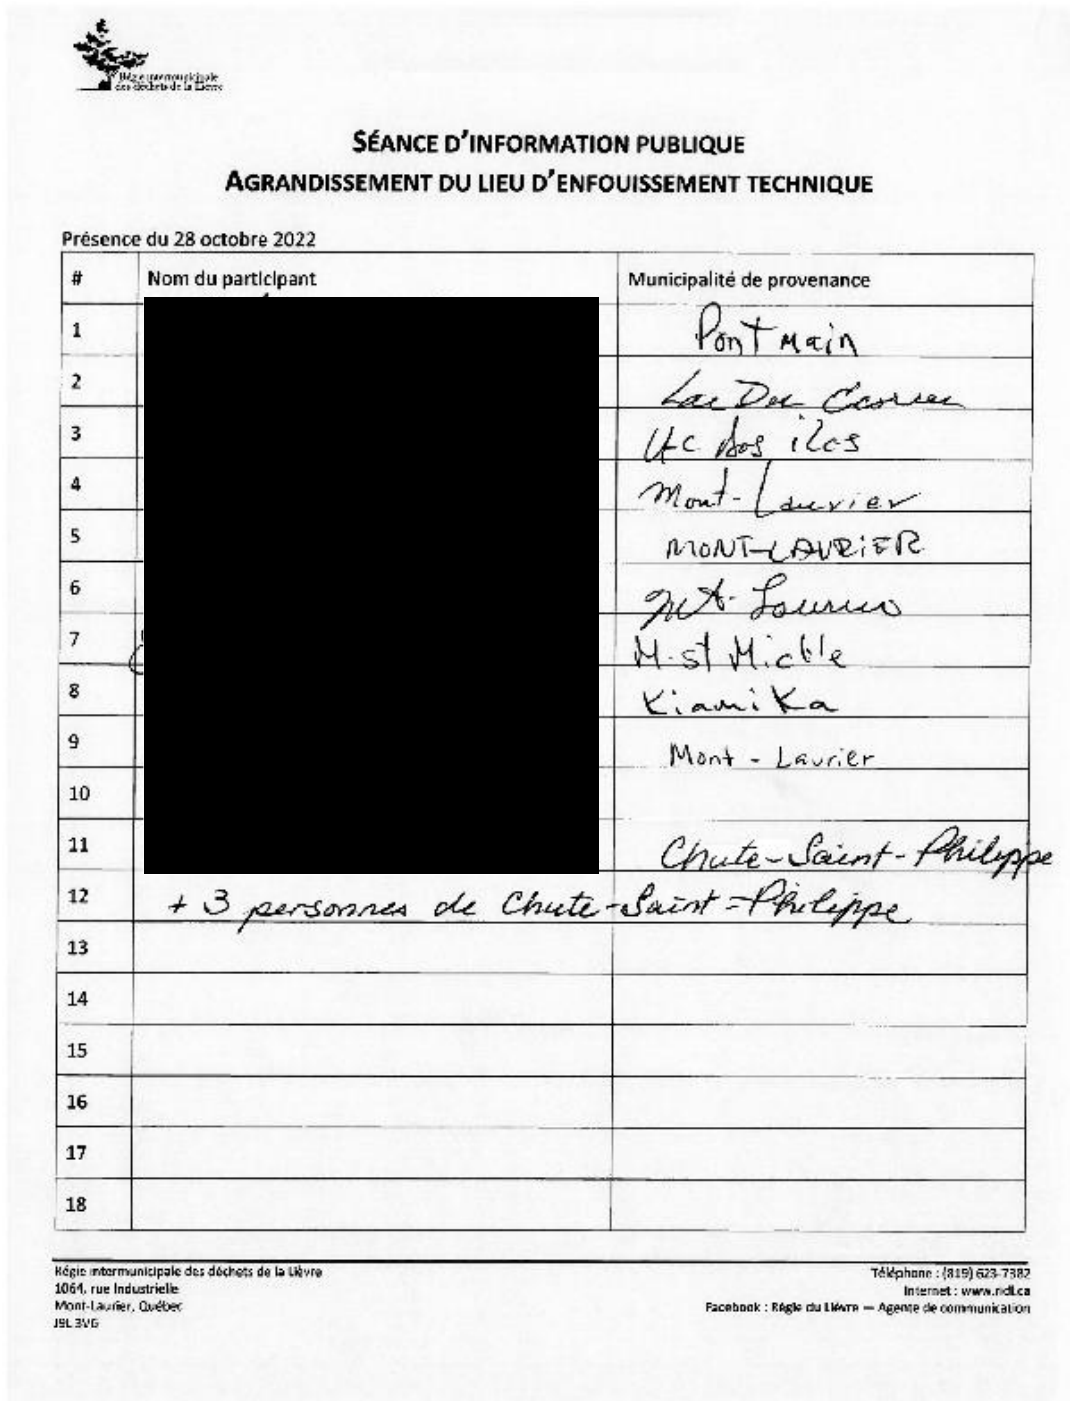 Régie intermunicipale
des déchets de la Lièvre
SÉANCE D'INFORMATION PUBLIQUE
AGRANDISSEMENT DU LIEU D'ENFOUISSEMENT TECHNIQUE
Présence du 28 octobre 2022
# Nom du participant Municipalité de provenance
1 Pont Main
2 Lac Du Cerf
3 Lac des iles
4 Mont-Laurier
5 MONT-LAURiER
6 Mt-Laurier
7 M-st Michle
8 KiamiKa
9 Mont - Laurier
10
11 Chute-Saint-Philippe
12 + 3 personnes de Chute-Saint-Philippe
13
14
15
16
17
18
Régie intermunicipale des déchets de la Lièvre
1064, rue Industrielle
Mont-Laurier, Québec
J9L 3V6
Téléphone : (819) 623-7382
Internet : www.ridl.ca
Facebook : Régie du Lièvre — Agente de communication